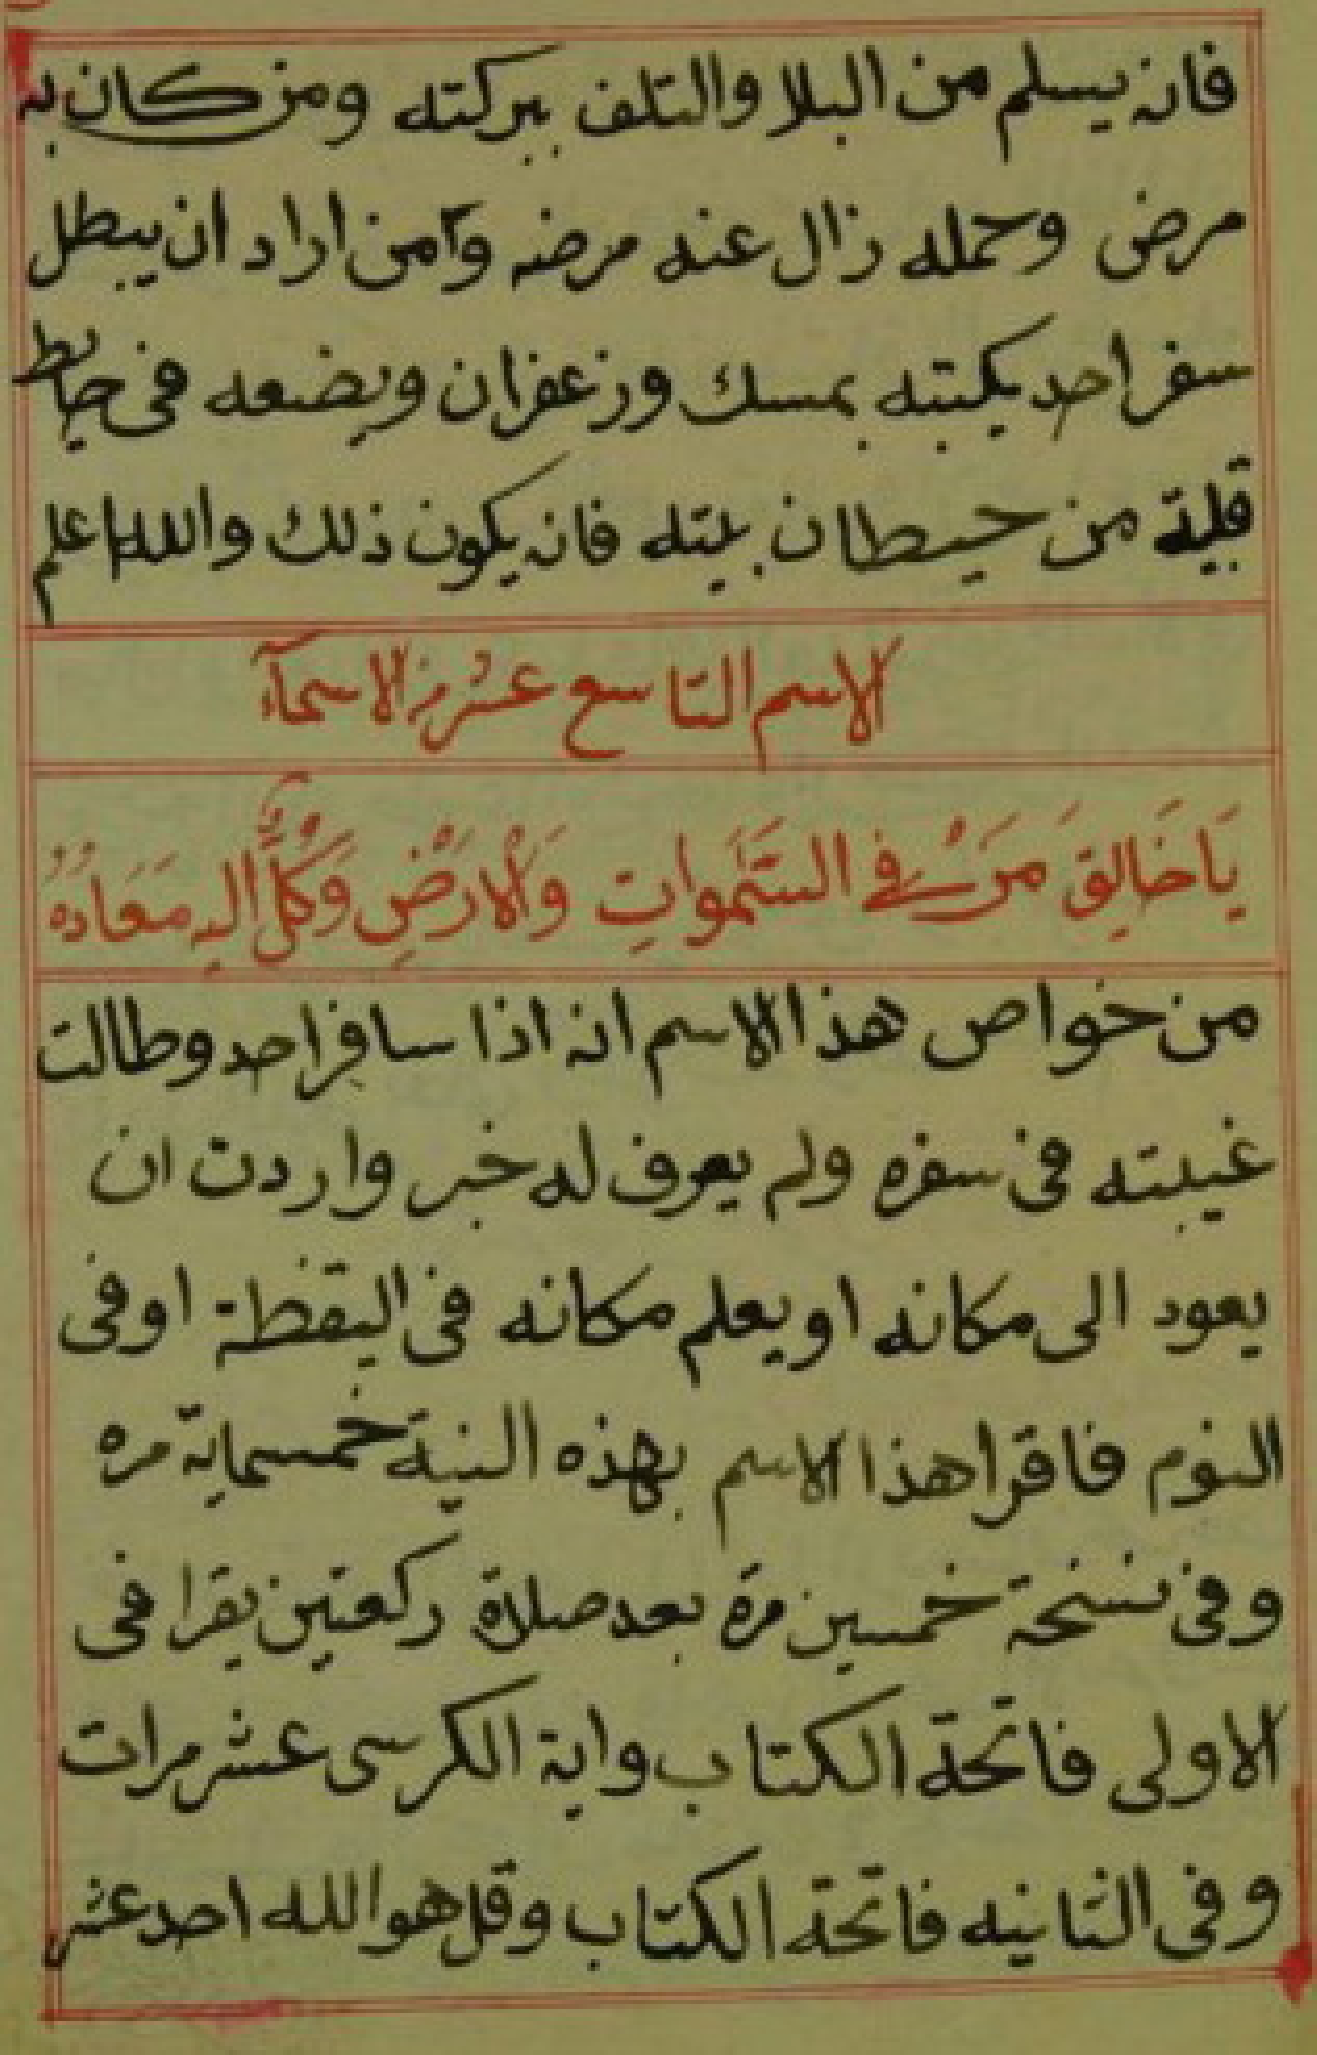 فانه يسلم من البلا والتلف ببركته ومن كان به
مرض وحمله زال عنه مرضه وآمن اراد ان يبطل
سفر احد يكتبه بمسك وزعفران ويضعه فى حايط
قبلية من حيطان بيته فانه يكون ذلك والله اعلم
الاسم التاسع عشر من الاسمآء
يَا خَالِقَ مَنْ فِي السَّمَوَاتِ وَالْاَرْضِ وَكُلٌّ اليه مَعَادُهُ
من خواص هذا الاسم انه اذا سافر احد وطالت
غيبته فى سفره ولم يعرف له خبر واردت ان
يعود الى مكانه او يعلم مكانه فى اليقظة او فى
النوم فاقرا هذا الاسم بهذه النية خمسماية مره
وفى نسخة خمسين مرة بعد صلاة ركعتين يقرا فى
الاولى فاتحة الكتاب واية الكرسى عشر مرات
وفى الثانيه فاتحة الكتاب وقل هو الله احد عشر